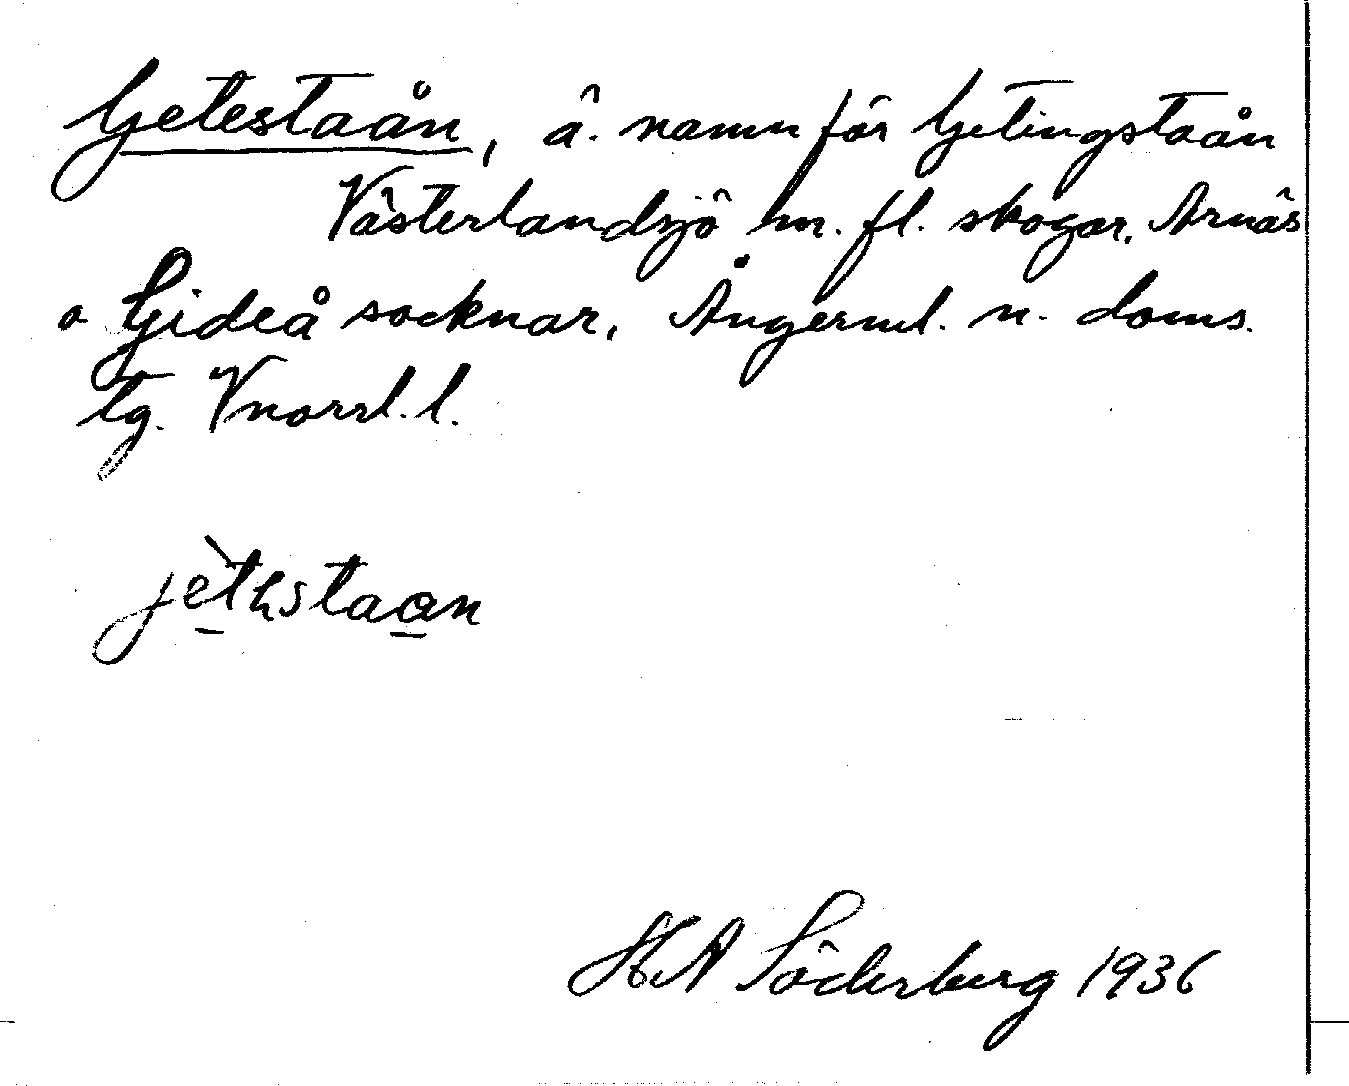 Getestaån, ä. namn för Getingstaån
Västerlandsjö m. fl. skogar, Arnäs
o Gideå socknar, Ångerml. n. doms.
tg. Vnorrl. l.
jèthstaan
HA Söderberg 1936